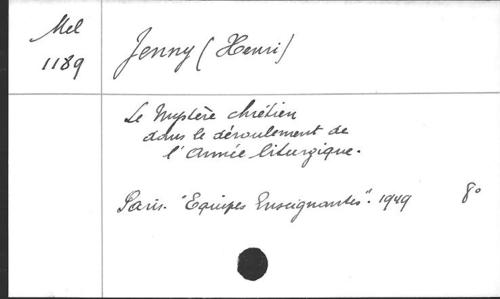 Mel
1189
Jenny (Henri)
Le Mystère chrétien
dans le déroulement de
l'Année liturgique.
Paris. "Equipes Enseignantes". 1949 8°